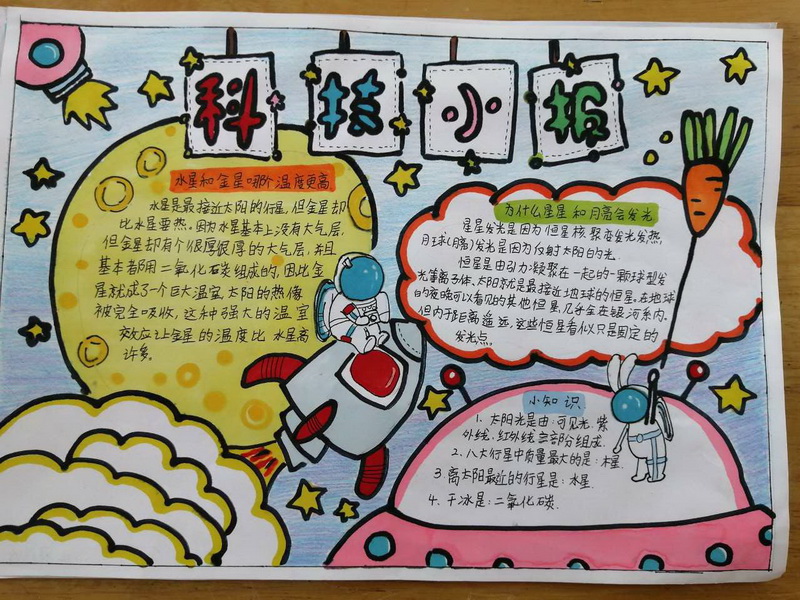 科技小报
水星和金星哪个温度更高
水星是最接近太阳的行星,但金星却
比水星要热。因为水星基本上没有大气层,
但金星却有个很厚很厚的大气层,并且
基本都用二氧化石炭组成的,因此金
星就成了一个巨大温室,太阳的热像
被完全吸收,这种强大的温室
效应让金星的温度比水星高
许多。
为什么星星和月亮会发光
星星发光是因为恒星核聚变发光发热
月球(月亮)发光是因为反射太阳的光。
恒星是由引力凝聚在一起的一颗球型发
光等离子体,太阳就是最接近地球的恒星,在地球
的夜晚可以看见的其他恒星,几乎全在银河系内。
但由于距离遥远,这些恒星看似只是固定的
发光点。
小知识
1、太阳光是由:可见光,紫
外线,红外线三部分组成。
2、八大行星中质量最大的是:木星.
3、离太阳最近的行星是:水星.
4、干冰是:二氧化石炭.